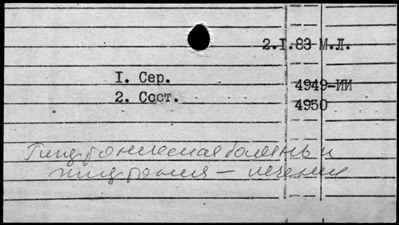 2.I.83 М.Л.
I. Сер.
4949-ИИ
2. Сост.
4950
Гипертоническая болезнь и
гипертония – лечение